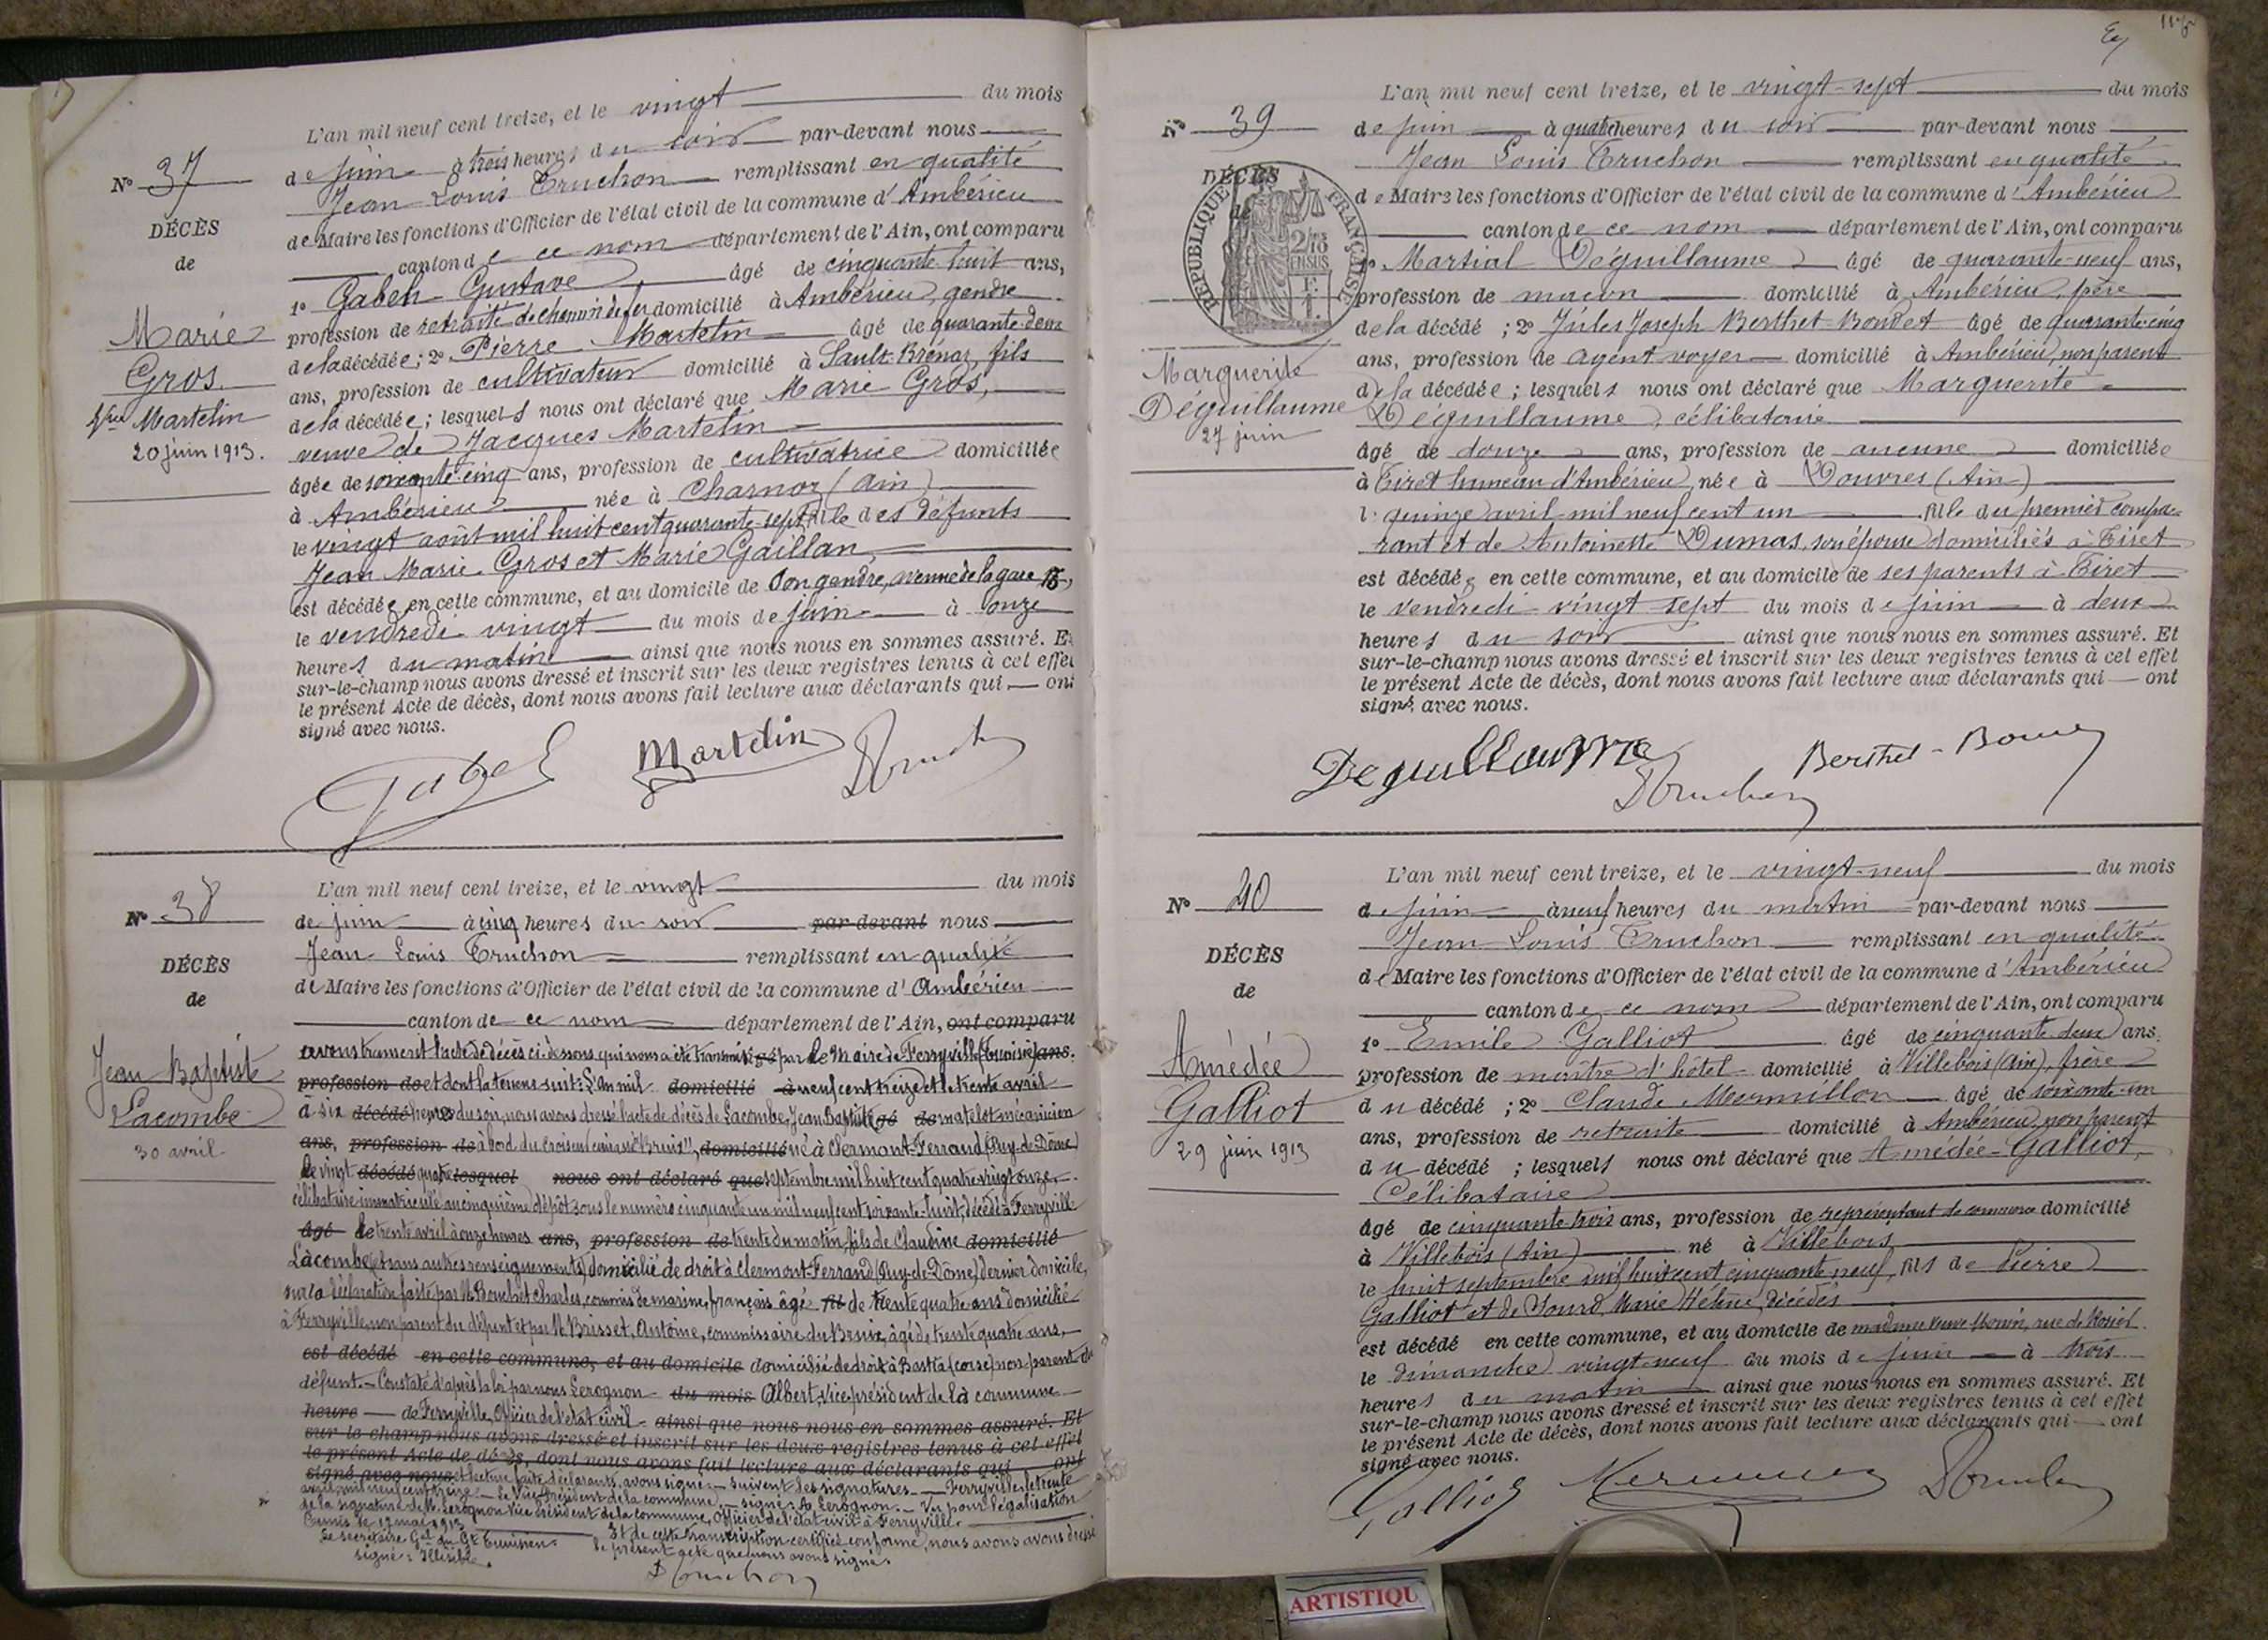 L'an mil neuf cent treize, et le vingt du mois
de juin à trois heures du soir par-devant nous
Jean Louis Truchon remplissant en qualité
de Maire les fonctions d'Officier de l'état civil de la commune d'Ambérieu
canton de ce nom département de l'Ain, ont comparu
1º Gabel Gustave âgé de cinquante huit ans,
profession de retraité de chemin de fer domicilié à Ambérieu, gendre
de la décédée; 2º Pierre Martelin âgé de quarante deux
ans, profession de cultivateur domicilié à Sault-Brénaz, fils
de la décédée; lesquels nous ont déclaré que Marie Gros,
veuve de Jacques Martelin
âgée de soixante-cinq ans, profession de cultivatrice domiciliée
à Ambérieu née à Charnoz (Ain)
le vingt août mil huit cent quarante-sept fille des défunts
Jean Marie Gros et Marie Gaillan
est décédée en cette commune, et au domicile de son gendre, avenue de la gare
le vendredi vingt du mois de juin à onze
heures du matin ainsi que nous nous en sommes assuré. Et
sur-le-champ nous avons dressé et inscrit sur les deux registres tenus à cet effet
le présent Acte de décès, dont nous avons fait lecture aux déclarants qui ont
signé avec nous.
Gabel Martelin Truchon
Nº 37
DÉCÈS
de
Marie
Gros
Vve Martelin
20 juin 1913.
L'an mil neuf cent treize, et le vingt du mois
de juin à cinq heures du soir par-devant nous
Jean Louis Truchon remplissant en qualité
de Maire les fonctions d'Officier de l'état civil de la commune d'Ambérieu
canton de ce nom département de l'Ain, ont comparu
avons transcrit l'acte de décès ci-dessous qui nous a été transmis par le Maire de Ferryville (Tunisie) ans.
profession de et dont la teneur suit: L'an mil domicilié à neuf cent treize et le trente avril
à six décédé heures du soir, nous avons dressé l'acte de décès de Lacombe, Jean Baptiste gé de matelot mécanicien
ans, profession de à bord du croiseur cuirassé "Bruix", domicilié né à Clermont-Ferrand (Puy-de-Dôme)
le vingt décédé quatre lesquel nous ont déclaré que septembre mil huit cent quatre-vingt onze,
célibataire immatriculé au cinquième dépôt sous le numéro cinquante un mil neuf cent soixante-huit, décédé à Ferryville
âgé le trente avril à onze heures ans, profession de trente du matin, fils de Claudine domicilié
Lacombe (et sans autres renseignements) domicilié de droit à Clermont-Ferrand (Puy-de-Dôme) dernier domicile,
sur la déclaration faite par M. Bouchet Charles, commis de marine, français âgé fil de trente quatre ans domicilié
à Ferryville, non parent du défunt et par M. Brisset, Antoine, commissaire du Bruix, âgé de trente quatre ans,
est décédé en cette commune, et au domicile domicilié de droit à Bastia (corse) non parent du
défunt. Constaté d'après la loi par nous Lerognon du mois Albert, vice président de la commune
heure de Ferryville, Officier de l'état civil ainsi que nous nous en sommes assuré. Et
sur-le-champ nous avons dressé et inscrit sur les deux registres tenus à cet effet
le présent Acte de décès, dont nous avons fait lecture aux déclarants qui ont
signé avec nous et lecture faite déclarants, avons signé. Suivent les signatures. Ferryville, le trente
avril mil neuf cent treize. Le Vice Président de la commune. signé: A. Lerognon. Vu pour légalisation
de la signature de M. Lerognon Vice Président de la commune, Officier de l'état civil à Ferryville.
Tunis le 12 mai 1913
Le secrétaire Gal du Gt Tunisien. Et de cette transcription certifiée conforme, nous avons avons dressé
signé: Illisible. le présent acte que nous avons signé.
Truchon
Nº 38
DÉCÈS
de
Jean Baptiste
Lacombe
30 avril
L'an mil neuf cent treize, et le vingt-sept du mois
de juin à quatre heures du soir par-devant nous
Jean Louis Truchon remplissant en qualité
de Maire les fonctions d'Officier de l'état civil de la commune d'Ambérieu
canton de ce nom département de l'Ain, ont comparu
1º Martial Déguillaume âgé de quarante-neuf ans,
profession de maçon domicilié à Ambérieu, père
de la décédé; 2º Jules Joseph Berthet-Bondet âgé de quarante-cinq
ans, profession de agent voyer domicilié à Ambérieu, non parent
de la décédée; lesquels nous ont déclaré que Marguerite
Déguillaume, célibataire
âgé de douze ans, profession de aucune domiciliée
à Tiret hameau d'Ambérieu, née à Douvres (Ain)
le quinze avril mil neuf cent un fille du premier compa-
rant et de Antoinette Dumas, son épouse domiciliés à Tiret
est décédée en cette commune, et au domicile de ses parents à Tiret
le vendredi vingt sept du mois de juin à deux
heures du soir ainsi que nous nous en sommes assuré. Et
sur-le-champ nous avons dressé et inscrit sur les deux registres tenus à cet effet
le présent Acte de décès, dont nous avons fait lecture aux déclarants qui ont
signé avec nous.
Deguillaume Truchon Berthet-Bondet
Nº 39
DÉCÈS
de
RÉPUBLIQUE FRANÇAISE
Marguerite
Déguillaume
27 juin
L'an mil neuf cent treize, et le vingt-neuf du mois
de juin à neuf heures du matin par-devant nous
Jean Louis Truchon remplissant en qualité
de Maire les fonctions d'Officier de l'état civil de la commune d'Ambérieu
canton de ce nom département de l'Ain, ont comparu
1º Emile Galliot âgé de cinquante deux ans.
profession de maître d'hôtel domicilié à Villebois (Ain), frère
du décédé; 2º Claude Mermillon âgé de soixante-un
ans, profession de retraité domicilié à Ambérieu, non parent
du décédé; lesquels nous ont déclaré que Amédée Galliot,
Célibataire
âgé de cinquante trois ans, profession de représentant de commerce domicilié
à Villebois (Ain) né à Villebois
le huit septembre mil huit cent cinquante neuf, fils de Pierre
Galliot et de Sourd Marie Hélène, décédés
est décédé en cette commune, et au domicile de madame veuve
le dimanche vingt-neuf du mois de juin à trois
heures du matin ainsi que nous nous en sommes assuré. Et
sur-le-champ nous avons dressé et inscrit sur les deux registres tenus à cet effet
le présent Acte de décès, dont nous avons fait lecture aux déclarants qui ont
signé avec nous.
Galliot Truchon
Nº 40
DÉCÈS
de
Amédée
Galliot
29 juin 1913
ARTISTIQU